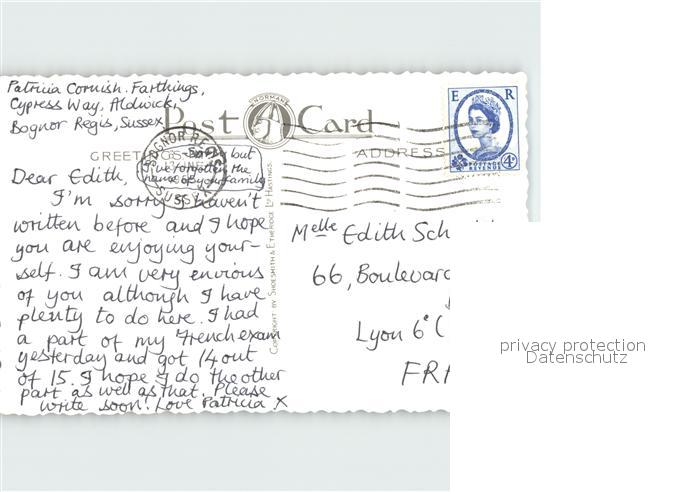 Patricia Cornish. Farthings,
Cypress Way, Aldwick,
Bognor Regis, Sussex
NORMAN
Post Card
GREETINGS
ADDRESS
Sorry but
I've forgotten the
name of your family
BOGNOR REGIS
SUSSEX
Dear Edith,
I'm sorry I haven't
written before and I hope
you are enjoying your-
self. I am very envious
of you although I have
plenty to do here. I had
a part of my French exam
yesterday and got 14 out
of 15. I hope I do the other
part as well as that. Please
write soon! Love Patricia X
COPYRIGHT BY SHOESMITH & ETHERIDGE LD HASTINGS.
E R
POSTAGE
REVENUE
4D
Melle Edith Sch
66, Boulevard
Lyon 6e (
FR
privacy protection
Datenschutz